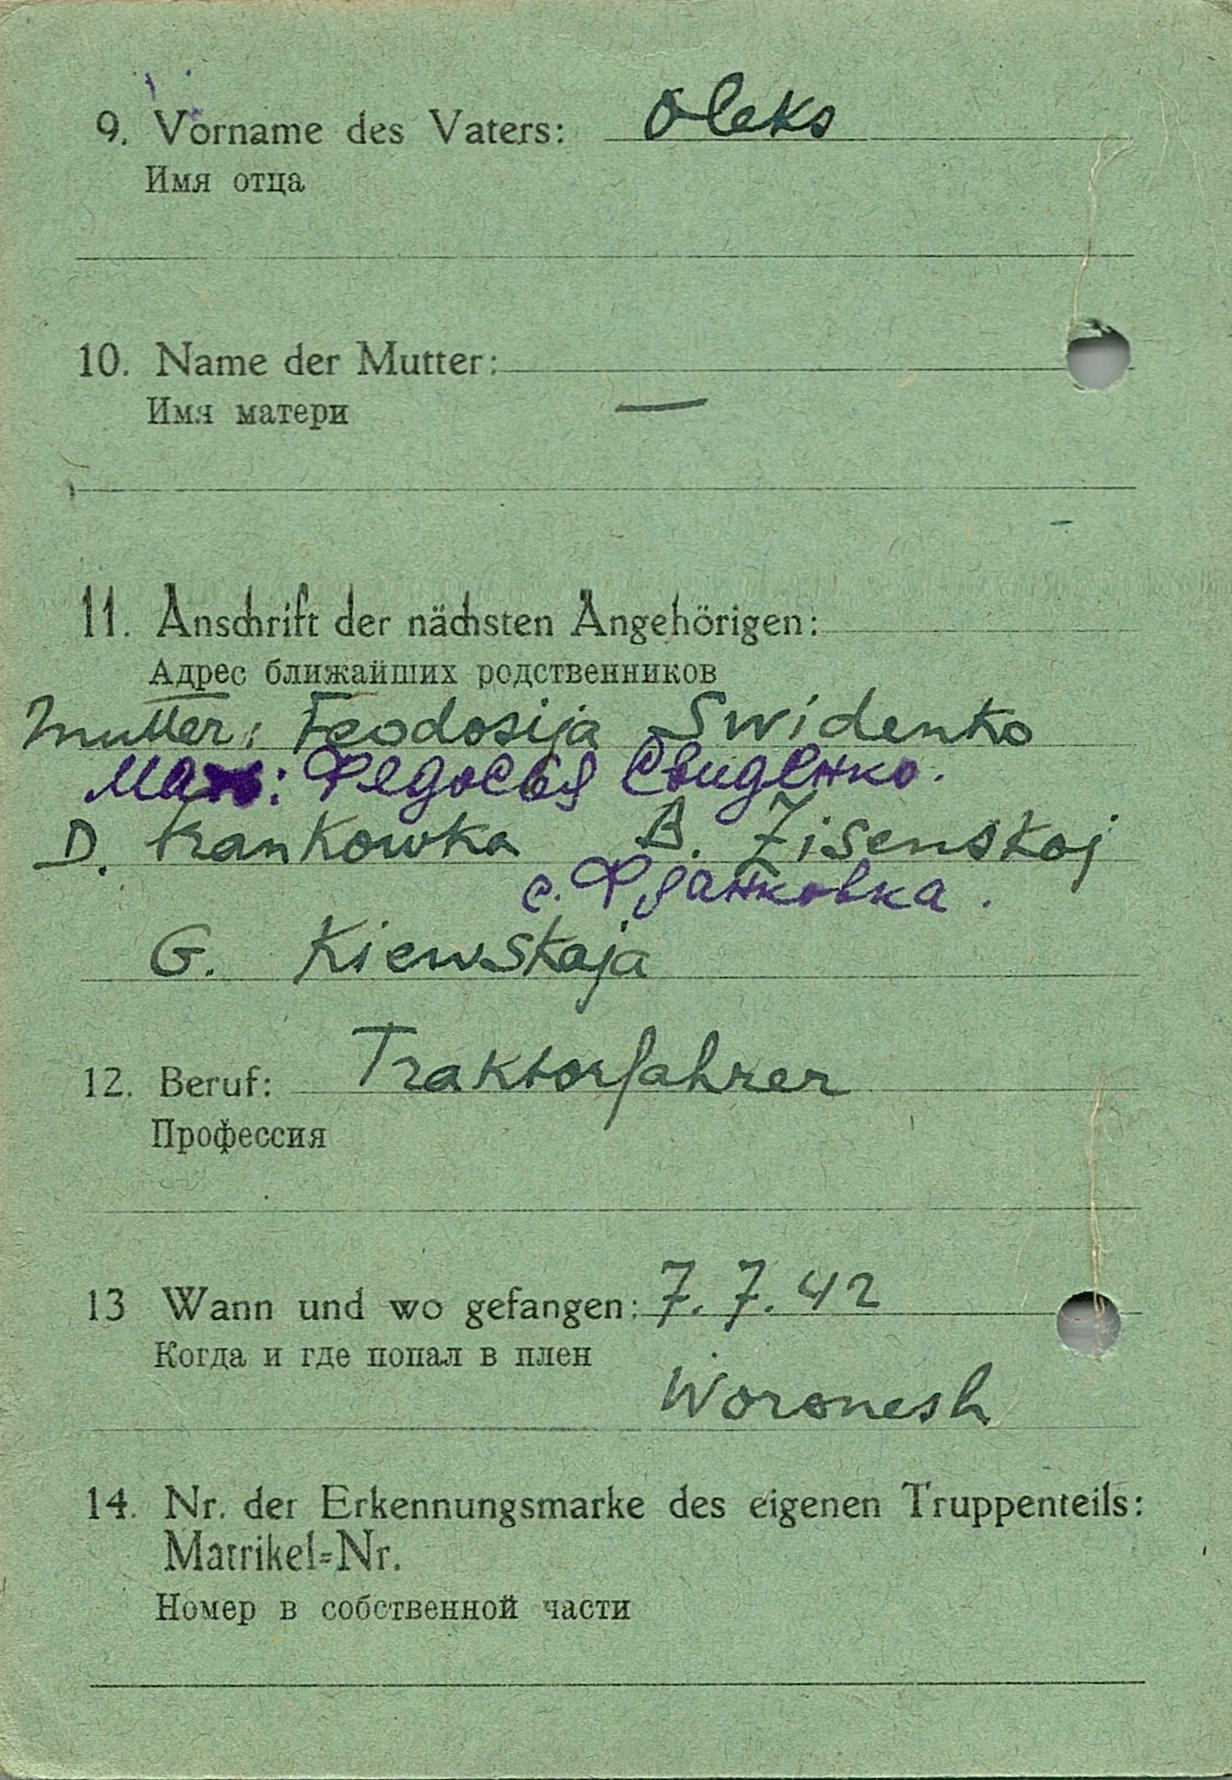 9. Vorname des Vaters: Oleks
Имя отца
10. Name der Mutter:
Имя матери
—
11. Anschrift der nächsten Angehörigen:
Адрес ближайших родственников
Mutter: Feodosija Swidenko
Мать: Федосья Свиденко.
D. Frankowka B. Zisenskoj
с. Франковка.
G. Kiewskaja
12. Beruf: Traktorfahrer
Профессия
13 Wann und wo gefangen: 7.7.42
Когда и где попал в плен
Woronesh
14. Nr. der Erkennungsmarke des eigenen Truppenteils:
Matrikel=Nr.
Номер в собственной части